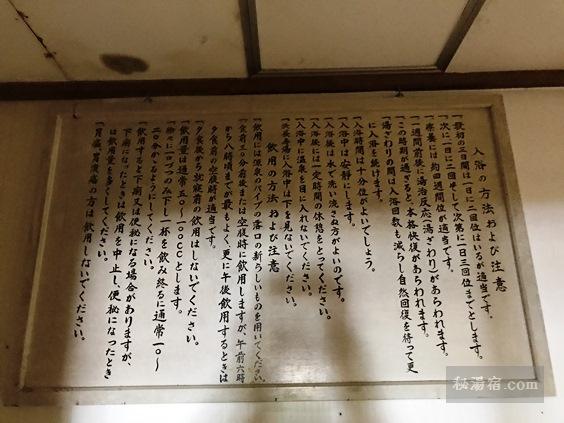 入浴の方法および注意
一、最初の三日間は一日に一回位はいるが適当です。
一、次に一日に二回そして次第に一日三回位までとします。
一、療養には約四週間位が適当です。
一、一週間前後に湯治反応(湯ざわり)があらわれます。
この時期が過ぎると、本格恢復があらわれます。
一、湯ざわりの間は入浴回数も減らし自然回復を待って更
に入浴を続けます。
一、入浴時間は十分位がよいでしょう。
一、入浴中は安静にします。
一、入浴後は水で洗い流さぬ方がよいのです。
一、入浴後には一定時間の休憩をとってください。
一、入浴中に温泉を目に入れないでください。
一、子宝長寿湯に入浴中は下を見ないでください。
飲用の方法および注意
一、飲用には源泉のパイプの落口の新らしいものを用いてください。
一、食前三〇分前後または空腹時に飲用しますが、午前六時
から八時頃までが最もよく、更に午後飲用するときは
夕食前の空腹時が適当です。
一、夕食後から就寝前の飲用はしないでください。
一、飲用量は通常五〇〜一〇〇ccとします。
一、徐々に一口づつのみ下し一杯を飲み終るに通常一〇〜
二〇分かかるようにしてください。
一、飲用すると下痢又は便秘になる場合がありますが、
下痢になったときは飲用を中止し、便秘になったとき
は飲用量を多くしてください。
一、胃癌、胃潰瘍の方は飲用しないでください。
秘湯宿.com